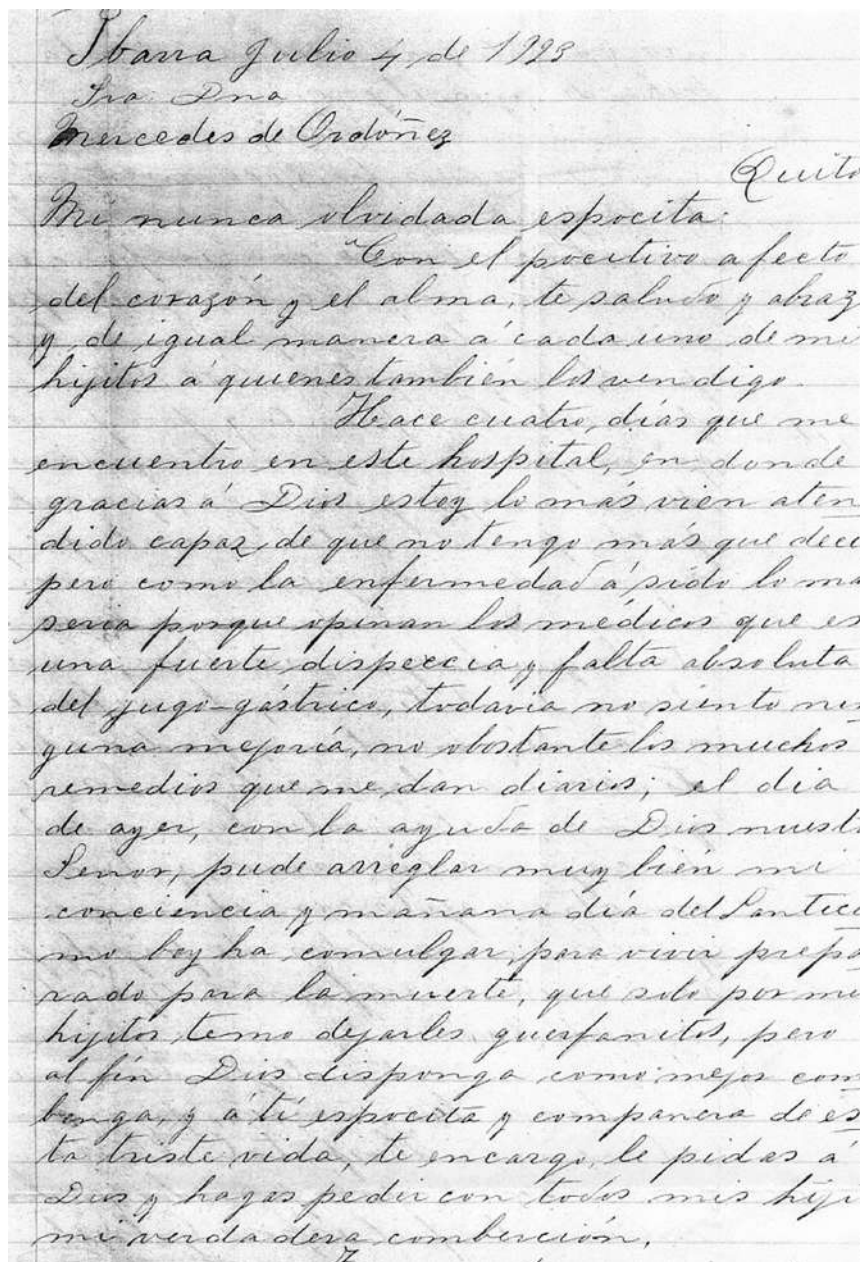 Ibarra Julio 4 de 1923
Sra. Dna
Mercedes de Ordóñez
Quito
Mi nunca olvidada espocita:
"Con el pocitivo afecto
del corazón y el alma, te saludo y abraz
y de igual manera á cada uno de mi
hijitos a quienes también los vendigo.
Hace cuatro, días que me
encuentro en este hospital, en donde
gracias á Dios estoy lo más vien aten
dido capaz, de que no tengo más que deci
pero como la enfermedad á sido lo ma
seria porque opinan los médicos que es
una fuerte, dispeccia, y falta absoluta
del jugo-gástrico, todavia no siento nin
guna mejoría, no obostante los muchos
remedios que me dan diarios; el dia
de ayer, con la ayuda de Dios nuest
Senor, pude arreglar muy bién mi
conciencia y mañana día del Santici
mo boy ha comulgar, para vivir prepa
rado para la muerte, que solo por mi
hijitos, temo dejarles guerfanitos, pero
al fín Dios disponga como mejor com
benga, y á tí espocita y companera de es
ta triste vida, te encargo, le pidas á
Dios y hagas pedir con todos mis hiji
mi verdadera comberción.